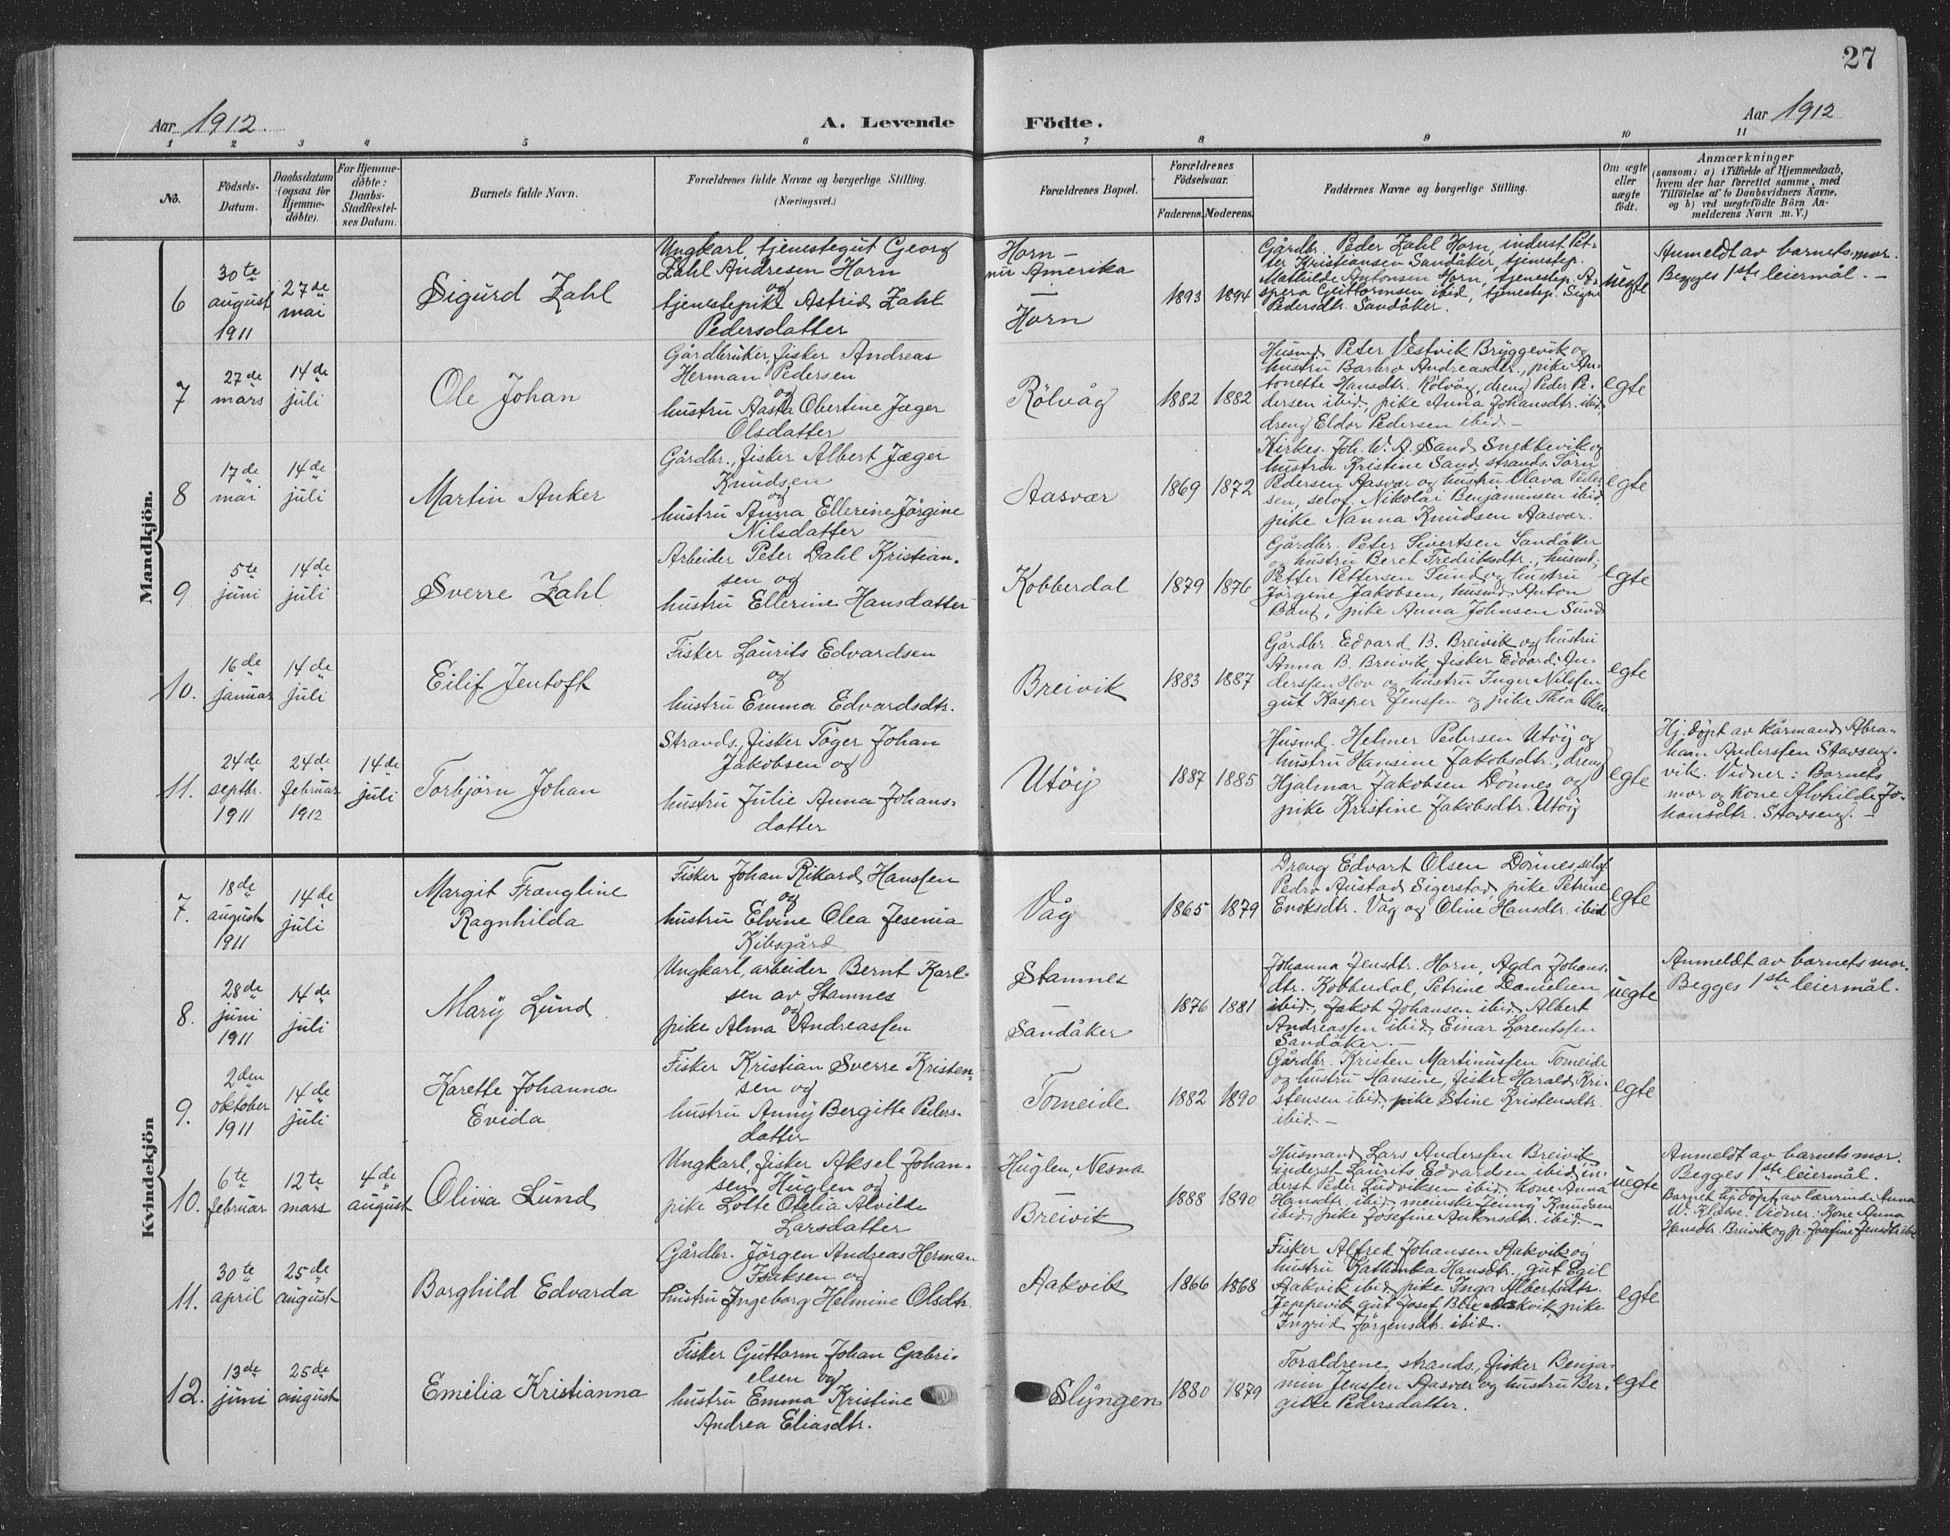 27
Aar 1912.
A. Levende Födte.
Aar 1912
1 2 3 4 5 6 7 8 9 10 11
No.
Födsels-
Datum.
Daabsdatum
(ogsaa for
Hjemme-
döbte).
For Hjemme-
döbte:
Daabs-
Stadfæstel-
ses Datum.
Barnets fulde Navn.
Forældrenes fulde Navne og borgerlige Stilling.
(Næringsvei.)
Forældrenes Bopæl.
Forældrenes
Födselsaar.
Faderens. Moderens.
Faddernes Navne og borgerlige Stilling.
Om ægte
eller
uægte
födt.
Anmærkninger
(saasom: a) i Tilfælde af Hjemmedaab,
hvem der har forrettet samme, med
Tilföielse af to Daabsvidners Navne,
og b) ved uægtefödte Börn An-
melderens Navn m. V.)
Mandkjön.
6
30te
august
1911
27de
mai
Sigurd Zahl
Ungkarl, tjenestegut Georg
Zahl Andresen Horn
og
tjenestepike Astrid Zahl
Pedersdatter
Horn –
nu Amerika
–
Horn
1893 1894
Gårdbr. Peder Zahl Horn, inderst Pet-
ter Kristiansen Sandåker, tjenestep.
Mathilde Antonsen Horn, tjenestep. A-
spera Guttormsen ibid, tjenestep. Signe
Pedersdtr. Sandåker.
uegte
Anmeldt av barnets mor.
Begges 1ste leiermål. –
7
27de
mars
14de
juli
Ole Johan
Gårdbruker, fisker Andreas
Herman Pedersen
og
hustru Aasta Obertine Jæger
Olsdatter
Rölvåg
1882 1882
Husmd. Peter Vestvik Bryggevik og
hustru Barbro Andreasdtr., pike An-
tonette Hansdtr. Rölvåg, dreng Peder Pe-
dersen ibid., pike Anna Johansdtr. ibid,
dreng Eldor Pedersen ibid –
egte
8
17de
mai
14de
juli
Martin Anker
Gårdbr., fisker Albert Jæger
Knudsen
og
hustru Anna Ellerine Jörgine
Nilsdatter
Aasvær
1869 1872
Kirkes. Joh. W. A. Sand Snekkevik og
hustru Kristine Sand, strands. Sörn
Pedersen Aasvær og hustru Olava Peder-
sen, selvf. Nikolai Benjaminsen ibid,
pike Nanna Knudsen Aasvær.
egte
9
5te
juni
14de
juli
Sverre Zahl
Arbeider Peter Dahl Kristian-
sen og
hustru Ellerine Hansdatter
Kobberdal
1879 1876
Gårdbr. Peter Sivertsen Sandåker
og hustru Beret Fredriksdtr., husmd.
Petter Pettersen Sund og hustru
Jörgine Jakobsen, husmd. Anton
Bang, pike Anna Johnsen Sund
egte
10.
16de
januar
14de
juli
Eilif Jentoft
Fisker Laurits Edvardsen
og
hustru Emma Edvardsdtr.
Breivik
1883 1887
Gårdbr. Edvard B. Breivik og hustru
Anna B. Breivik, fisker Edvard An-
derssen Hov og hustru Inger Nilssen
gut Kasper Jenssen og pike Thea Olsen
egte
11.
24de
septbr.
1911
24de
februar
1912
14de
juli
Torbjörn Johan
Strands., fisker Töger Johan
Jakobsen og
hustru Julie Anna Johans-
datter
Utöy
1887 1885
Husmd. Helmer Pedersen Utöy og
hustru Hansine Jakobsdtr., dreng
Hjalmar Jakobsen Dönnes og
pike Kristine Jakobsdtr. Utöy
egte
Hj.döpt av kårmand Abra-
ham Anderssen Stavseng-
vik. Vidner: Barnets
mor og kone Alvhilde Jo-
hansdtr. Stavseng. –
Kvindekjön
7.
18de
august
1911
14de
juli
Margit Frængline
Ragnhilda
Fisker Johan Rikard Hanssen
og
hustru Elvine Olea Jesenia
Kibsgård
Våg
1865 1879
Dreng Edvart Olsen Dönnes, selvf.
Pedro Austad Sigerstad, pike Petrine
Enoksdtr. Våg og Oline Hansdtr. ibid
egte
8.
28de
juni
1911
14de
juli
Mary Lund
Ungkarl, arbeider Bernt Karl-
sen av Stamnes
og
pike Alma Andreassen
Stamnes
–
Sandåker
1876 1881
Johanna Jensdtr. Horn, Agda Johans-
dtr. Kobberdal, Petrine Danielsen
ibid., Jakob Johansen ibid, Albert
Andreassen ibid, Einar Lorentssen
Sandåker. –
uegte
Anmeldt av barnets mor.
Begges 1ste leiermål.
9.
2den
oktober
1911
14de
juli
Karette Johanna
Evida
Fisker Kristian Sverre Kristen-
sen og
hustru Anny Bergitte Peders-
datter
Tomeide
1882 1890
Gårdbr. Kristen Martinussen Tomeide
og hustru Hansine, fisker Harald Kri-
stensen ibid., pike Stine Kristensdtr.
ibid. –
egte
10.
6te
februar
12te
mars
4de
august
Olivia Lund
Ungkarl, fisker Aksel Johan-
sen Huglen og
pike Lotte Otelia Alvilde
Larsdatter
Huglen, Nesna
–
Breivik
1888 1890
Husmand Lars Anderssen Breivik
inderst Laurits Edvardsen ibid, in-
derst Peder Ludviksen ibid, kone Anna
Hansdtr. ibid, meierske Jenny Knudsen
ibid, pike Josefine Antonsdtr. ibid. –
uegte
Anmeldt av barnets mor.
Begges 1ste leiermål.
Barnet hj.döpt av lærerinde Anna
W. Vidner: Kone Anna
Hansdtr. Breivik og p. Josefine Jensdtr. ibid
11.
30te
april
25de
august
Borghild Edvarda
Gårdbr. Jörgen Andreas Herman
Isaksen og
hustru Ingeborg Helmine Olsdtr.
Aakvik
1866 1868
Fisker Alfred Johansen Aakvik og
hustru Kathinka Hansdtr., gut Egil
Aakvik ibid, pike Inga Albertsdtr.
Jeppevik gut Josef Aakvik, pike
Ingrid Jörgensdtr. ibid.
egte
12.
13de
juni
25de
august
Emelia Kristianna
Fisker Guttorm Johan Gabri-
elsen og
hustru Emma Kristine
Andrea Eliasdtr.
Slyngen
1880 1879
Foraldrene, strands., fisker Benja-
min Jenssen Aasvær og hustru Ber-
gitte Pedersdatter.
egte